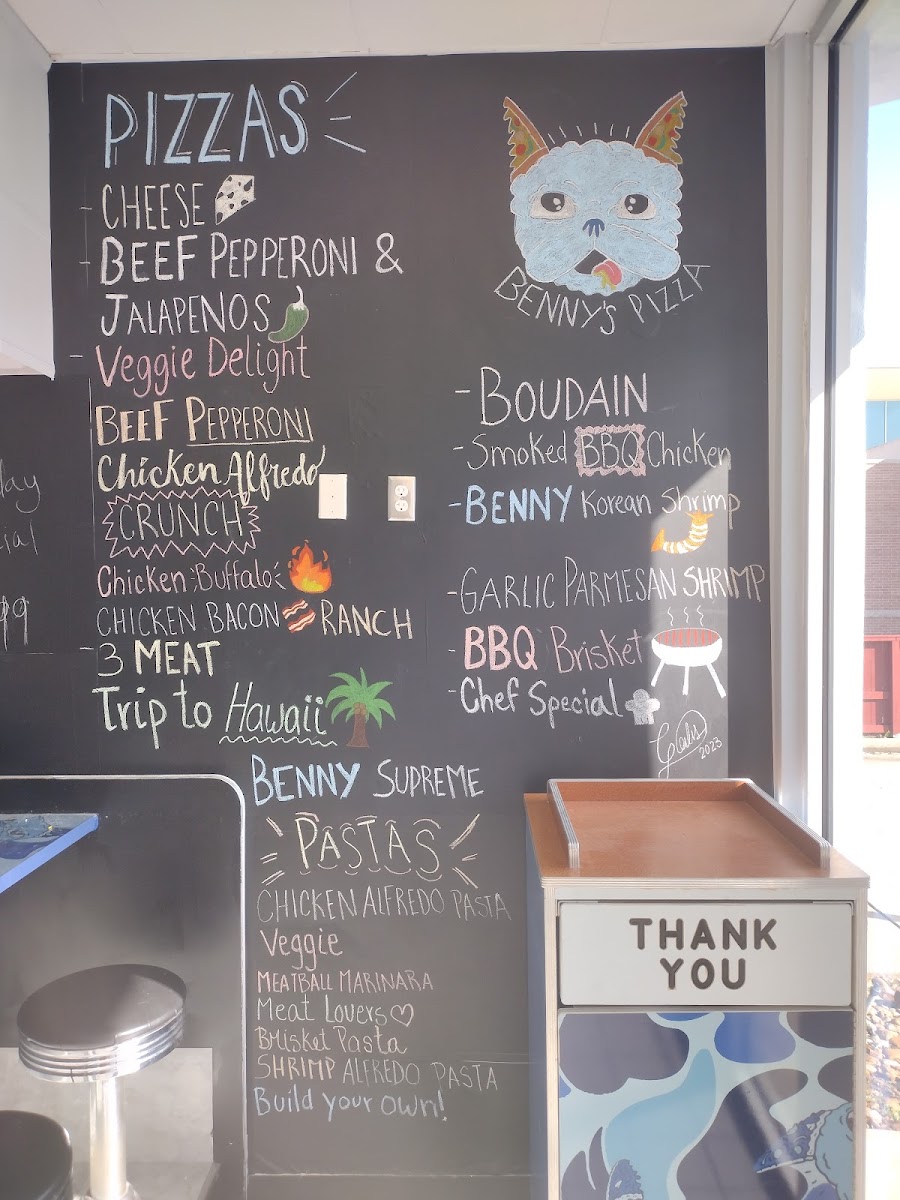 PIZZAS
CHEESE
BEEF PEPPERONI &
JALAPENOS
Veggie Delight
BEEF PEPPERONI
Chicken Alfredo
CRUNCH
Chicken Buffalo
CHICKEN BACON RANCH
3 MEAT
Trip to Hawaii
BENNY SUPREME
BENNY'S PIZZA
- BOUDAIN
- Smoked BBQ Chicken
- BENNY Korean Shrimp
- GARLIC PARMESAN SHRIMP
- BBQ Brisket
- Chef Special
2023
PASTAS
CHICKEN ALFREDO PASTA
Veggie
MEATBALL MARINARA
Meat Lovers
Brisket Pasta
SHRIMP ALFREDO PASTA
Build your own!
THANK
YOU